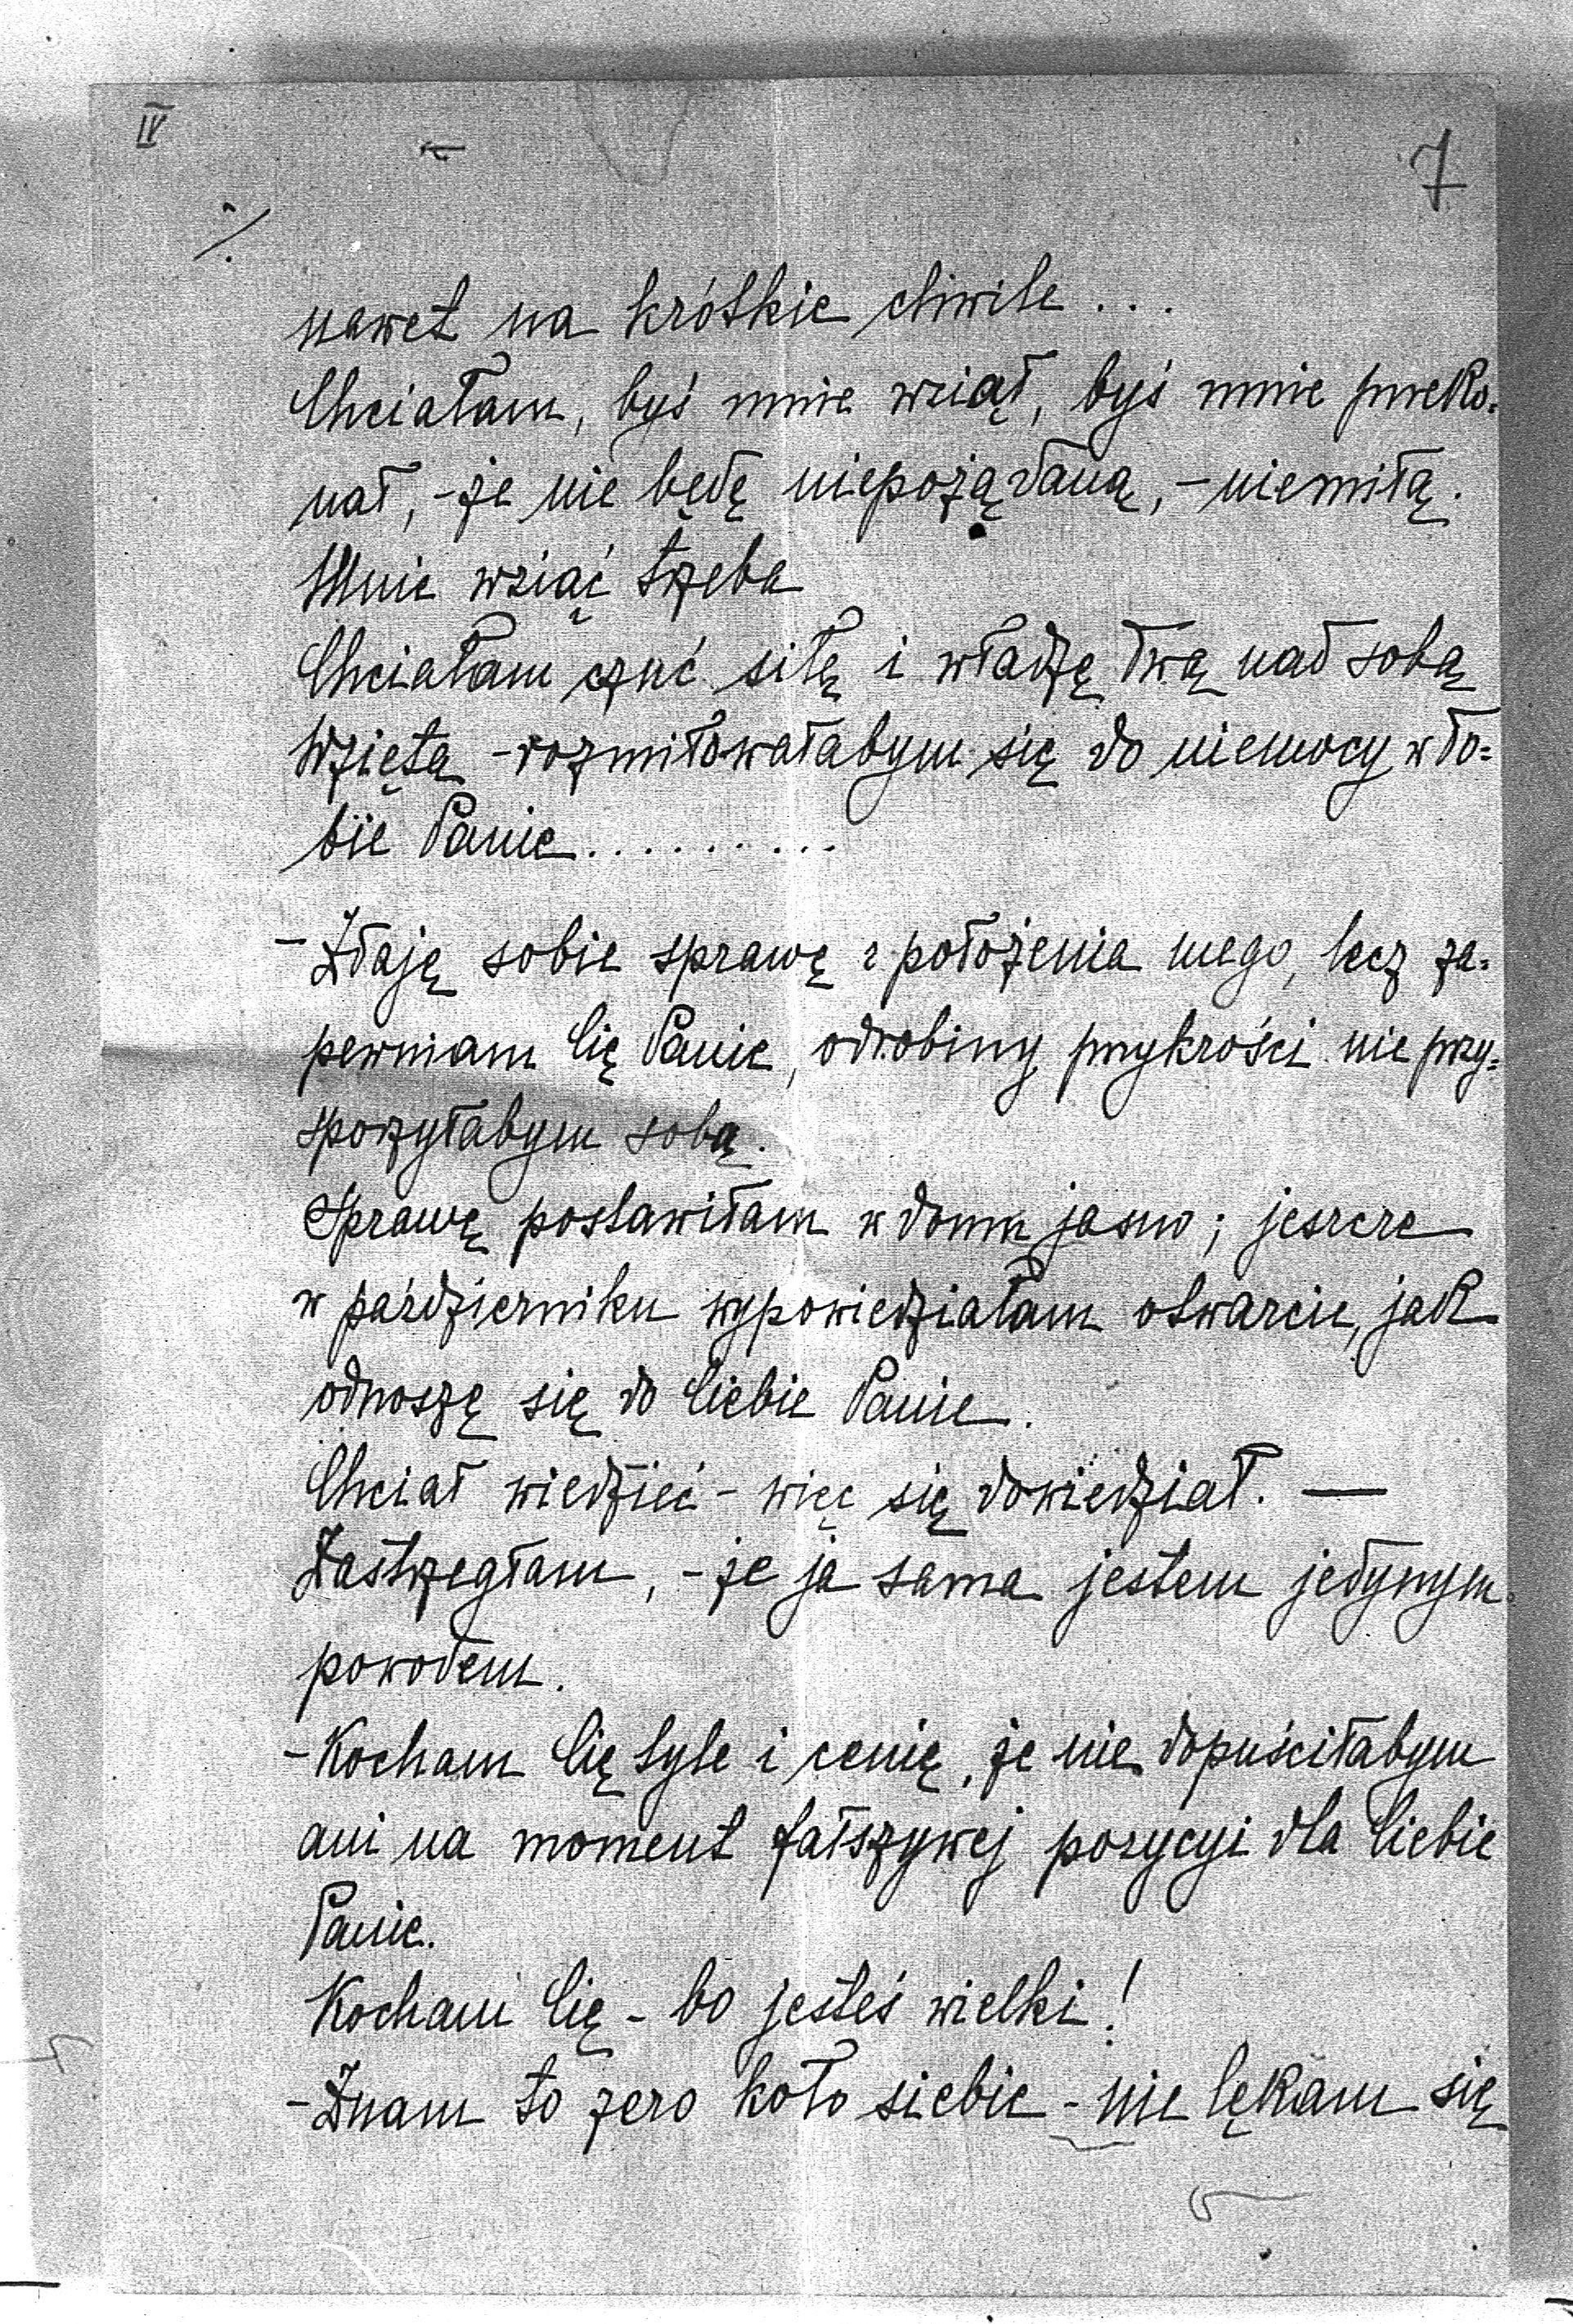 IV
7
./.
nawet na krótkie chwile ...
Chciałam, byś mnie wziął, byś mnie przeko=
nał, - że nie będę niepożądaną, - niemiłą.
Mnie wziąć trzeba
Chciałam czuć siłę i władzę twą nad sobą
Wzięta - rozmiłowałabym się do niemocy w to=
bie Panie ..........
- Zdaję sobie sprawę z położenia mego, lecz za=
pewniam Cię Panie, odrobiny przykrości nie przy=
sporzyłabym sobą.
Sprawę postawiłam w domu jasno; jeszcze
w październiku wypowiedziałam otwarcie, jak
odnoszę się do Ciebie Panie.
Chciał wiedzieć - więc się dowiedział. —
Zastrzegłam, - że ja sama jestem jedynym
powodem.
- Kocham Cię tyle i cenię, że nie dopuściłabym
ani na moment fałszywej pozycyi dla Ciebie
Panie.
Kocham Cię - bo jesteś wielki!
- Znam to zero koło siebie - nie lękam się